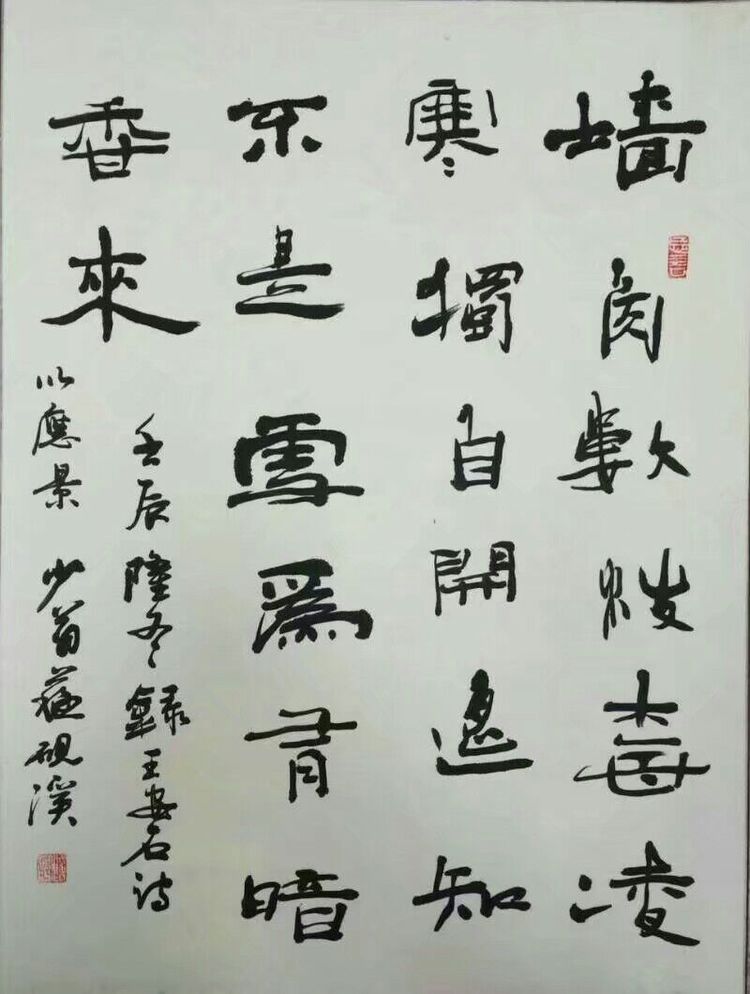 墙角數枝梅凌
寒獨自開遥知
不是雪爲有暗
香來
壬辰隆冬錄王安石詩
以應景 少硯溪